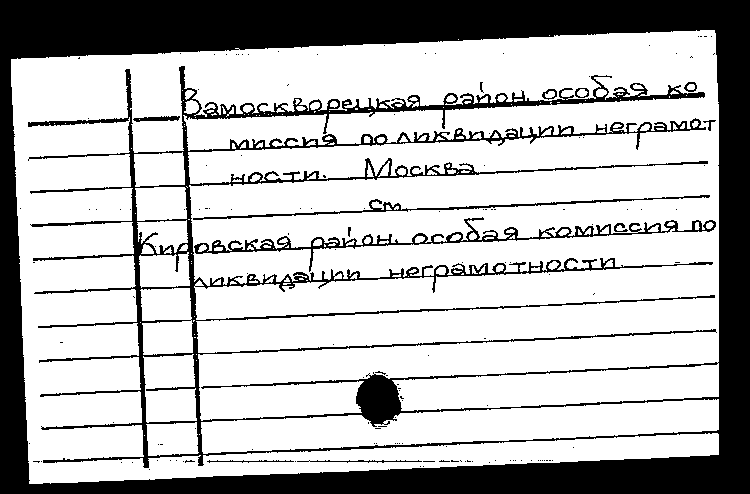 Замоскворецкая район. особая ко
миссия по ликвидации неграмот
ности. Москва
см.
Кировская район. особая комиссия по
ликвидации неграмотности